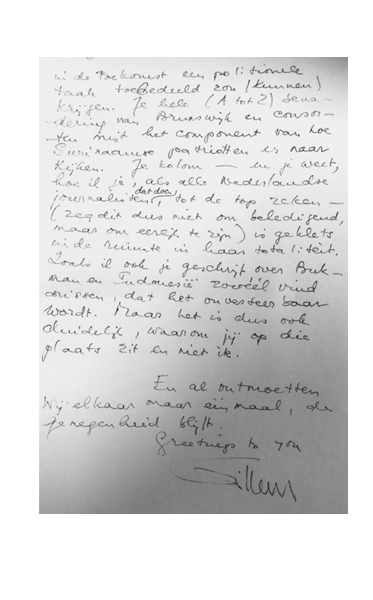 in de toekomst een politionele
taak toebedeeld zou (kunnen)
krijgen. Je hele (A tot Z) bena-
dering van Brunswijk en consor-
ten mist het component van hoe
Surinaamse patriotten er naar
kijken. Je kolom — en je weet,
hoe ik je, als alle Nederlandse
journalisten, dat doen, tot de top reken —
(zeg dit dus niet om beledigend,
maar om eerlijk te zijn) is geklets
in de ruimte in haar totaliteit.
Zoals ik ook je geschrijf over
en Indonesië zoveel vind
missen, dat het onverteerbaar
wordt. Maar het is dus ook
duidelijk, waarom jij op die
plaats zit en niet ik.
En al ontmoetten
wij elkaar maar één maal, de
genegenheid blijft.
Greetings to you
Willem